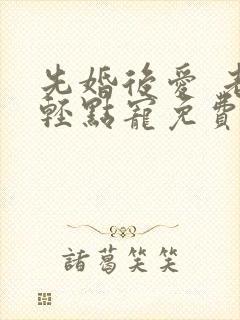 先婚後愛 老
輕點寵免費
諸葛笑笑